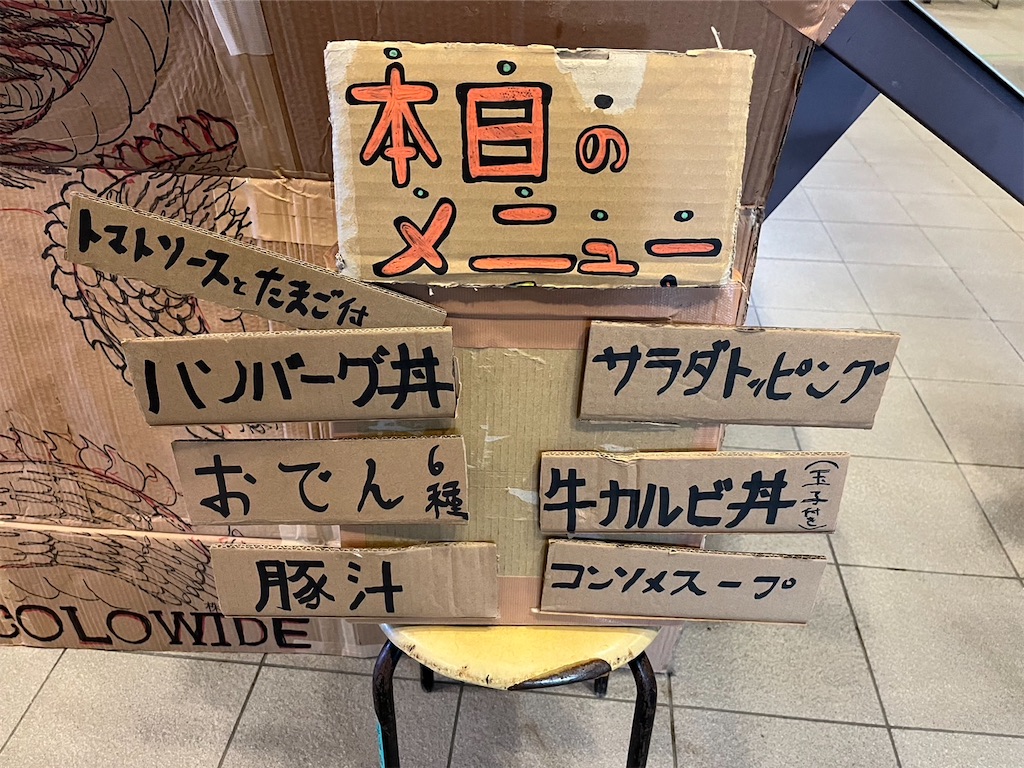 本日の
メニュー
トマトソースとたまご付
ハンバーグ丼
おでん 6種
豚汁
サラダトッピング
牛カルビ丼(玉子付き)
コンソメスープ
COLOWIDE